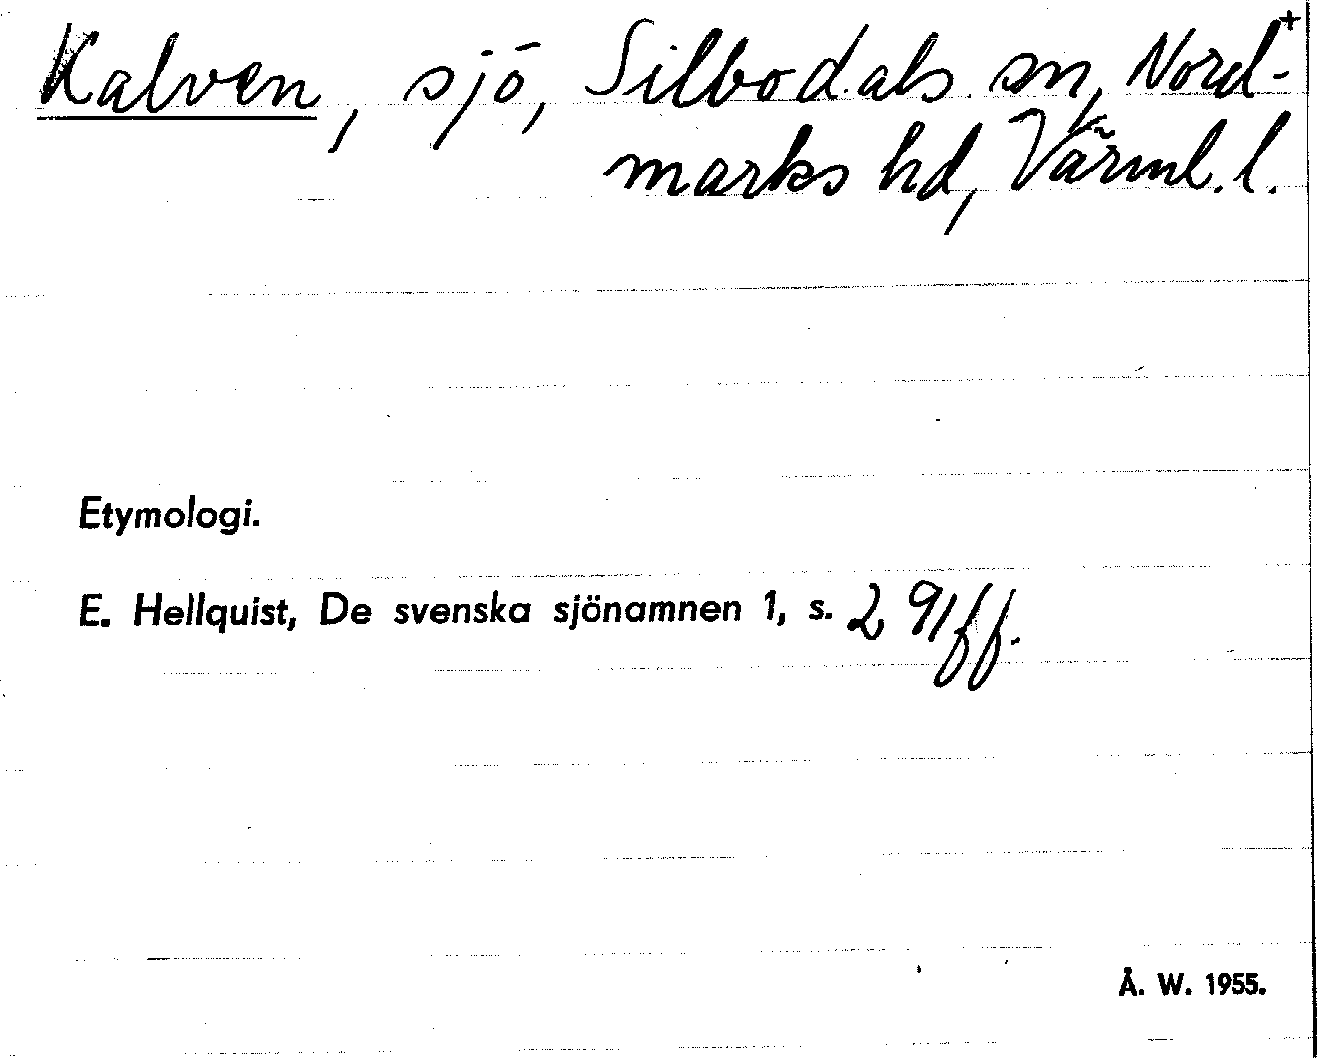 Kalven, sjö, Silbodals sn, Nord-+
marks hd, Värml. l.
Etymologi.
E. Hellquist, De svenska sjönamnen 1, s. 291 ff.
Å. W. 1955.